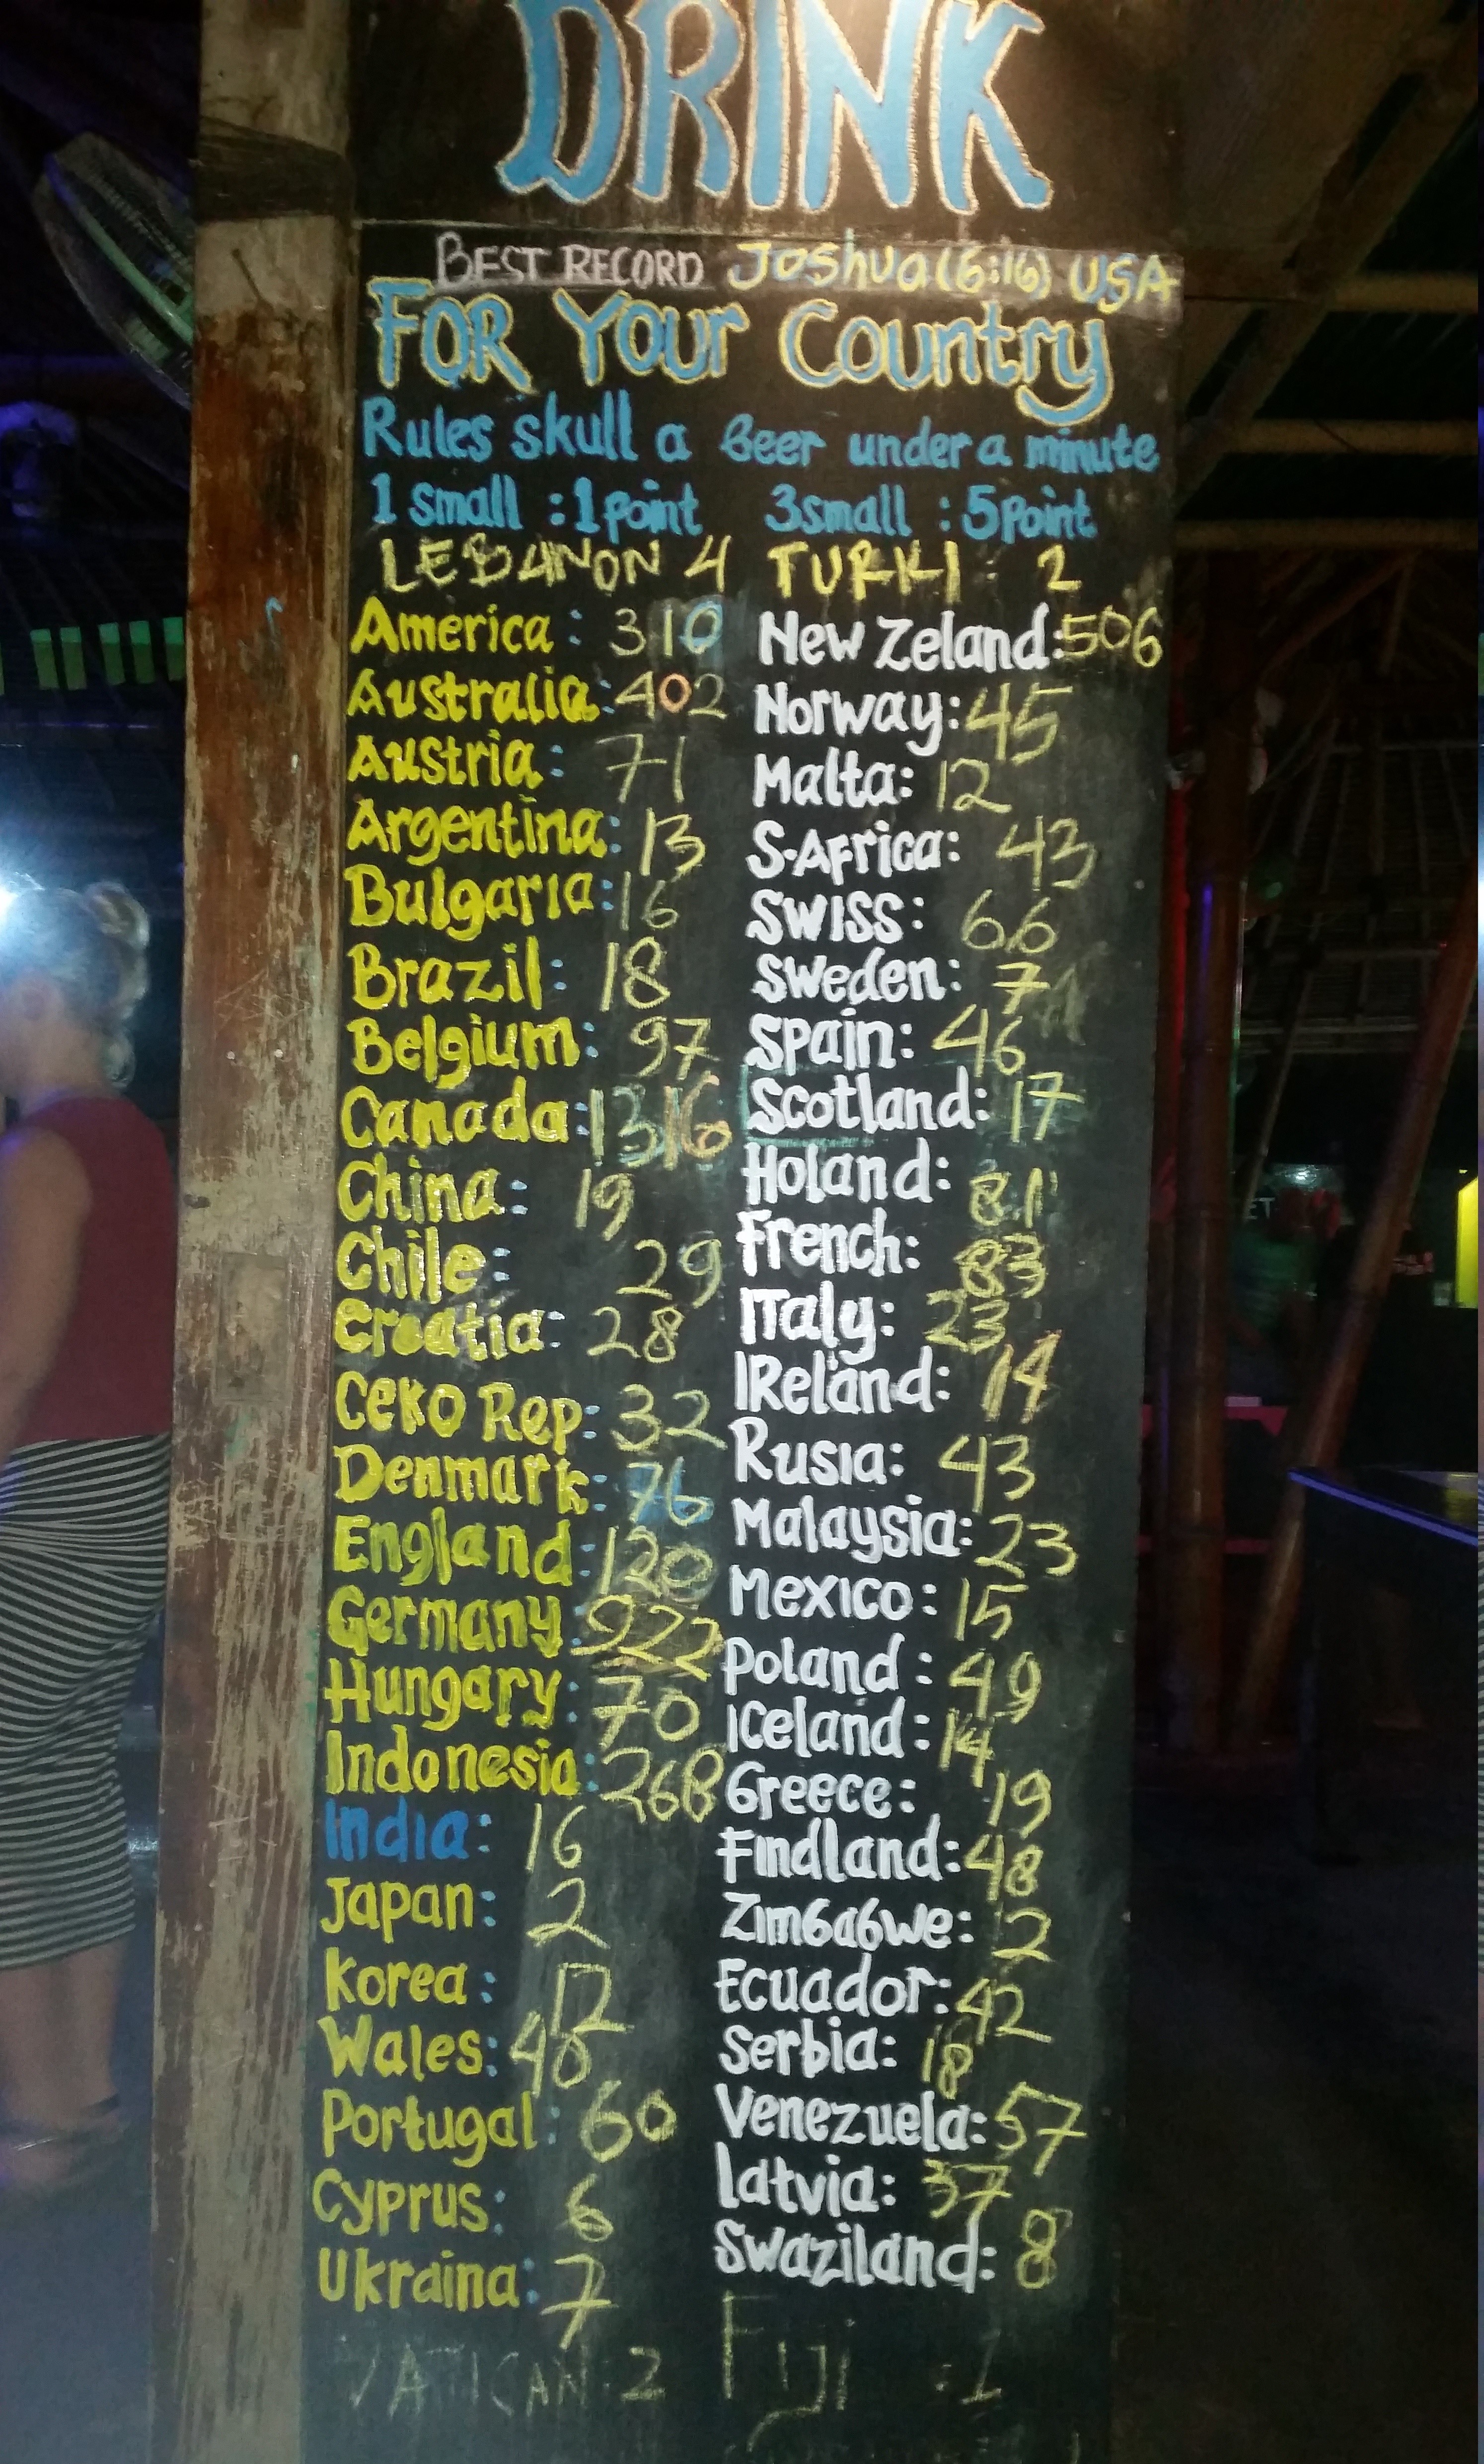 DRINK
BEST RECORD Joshua (6:16) USA
FOR Your Country
Rules skull a Beer under a minute
1 small : 1 point 3 small : 5 point
LEBANON 4 TURKI : 2
America : 310
Australia : 402
Austria : 71
Argentina : 13
Bulgaria : 16
Brazil : 18
Belgium : 97
Canada : 1316
China : 19
Chile : 29
Croatia : 28
Ceko Rep : 32
Denmark : 76
England : 120
Germany : 922
Hungary : 70
Indonesia : 268
India : 16
Japan : 2
Korea : 12
Wales : 40
Portugal : 60
Cyprus : 6
Ukraina : 7
VATICAN : 2
New Zeland : 506
Norway : 45
Malta : 12
S.Africa : 43
SWISS : 66
Sweden : 7
Spain : 46
Scotland : 17
Holand : 81
French : 83
ITaly : 23
IReland : 14
Rusia : 43
Malaysia : 23
Mexico : 15
Poland : 49
Iceland : 14
Greece : 19
Findland : 48
Zimbabwe : 2
Ecuador : 42
Serbia : 18
Venezuela : 57
Latvia : 37
Swaziland : 8
Fiji : 1